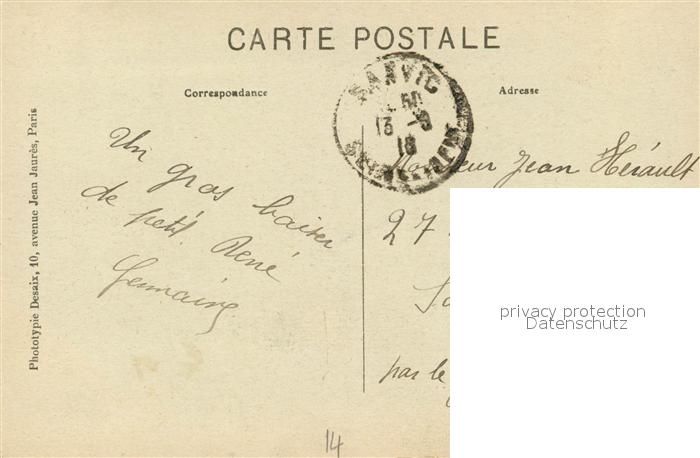 CARTE POSTALE
Correspondance
Adresse
SANVIC
13 -9
18
SEINE-INFRE
Un gros baiser
de petit René
Germaine
Monsieur Jean Hérault
27
par le
privacy protection
Datenschutz
Phototypie Desaix, 10, avenue Jean Jaurès, Paris
14